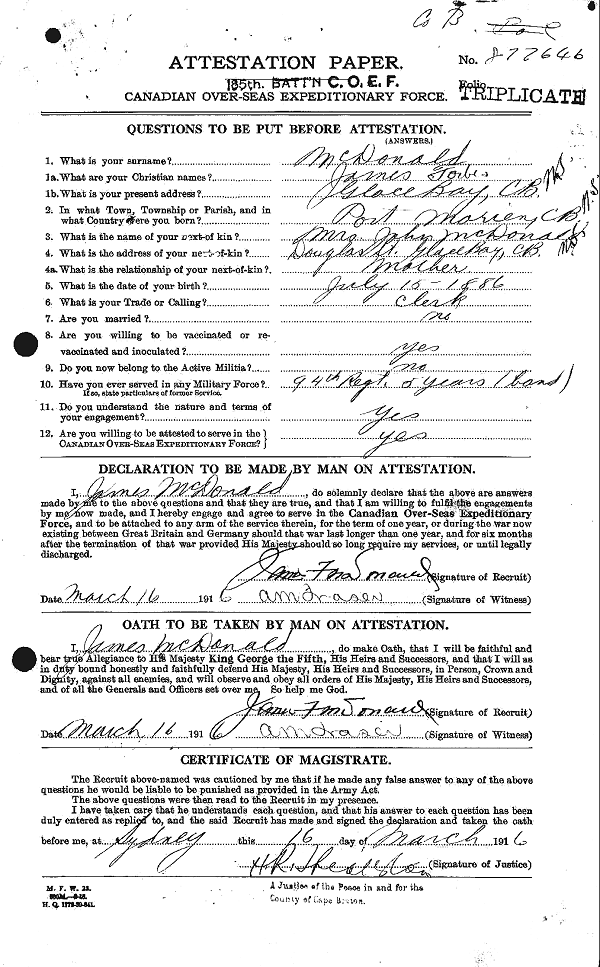 Co B.
No. 877646
ATTESTATION PAPER.
185th. BATT'N C. O. E. F.
Folio
TRIPLICATE
CANADIAN OVER-SEAS EXPEDITIONARY FORCE.
QUESTIONS TO BE PUT BEFORE ATTESTATION.
(ANSWERS.)
1. What is your surname? McDonald
1a. What are your Christian names? James Forbes
1b. What is your present address? Glace Bay, C.B. N.S.
2. In what Town, Township or Parish, and in
what Country were you born? Port Morien, C.B. N.S.
3. What is the name of your next-of kin? Mrs. John McDonald
4. What is the address of your next-of-kin? Douglas St. Glace Bay, C.B. N.S.
4a. What is the relationship of your next-of-kin? Mother
5. What is the date of your birth? July 15-1886
6. What is your Trade or Calling? Clerk
7. Are you married? no
8. Are you willing to be vaccinated or re-
vaccinated and inoculated? yes
9. Do you now belong to the Active Militia? no
10. Have you ever served in any Military Force? 94th Regt. 5 years (band)
If so, state particulars of former Service.
11. Do you understand the nature and terms of
your engagement? Yes
12. Are you willing to be attested to serve in the
CANADIAN OVER-SEAS EXPEDITIONARY FORCE? yes
DECLARATION TO BE MADE BY MAN ON ATTESTATION.
I, James McDonald, do solemnly declare that the above are answers
made by me to the above questions and that they are true, and that I am willing to fulfil the engagements
by me now made, and I hereby engage and agree to serve in the Canadian Over-Seas Expeditionary
Force, and to be attached to any arm of the service therein, for the term of one year, or during the war now
existing between Great Britain and Germany should that war last longer than one year, and for six months
after the termination of that war provided His Majesty should so long require my services, or until legally
discharged.
James F McDonald (Signature of Recruit)
Date March 16 1916 A M Fraser (Signature of Witness)
OATH TO BE TAKEN BY MAN ON ATTESTATION.
I, James McDonald, do make Oath, that I will be faithful and
bear true Allegiance to His Majesty King George the Fifth, His Heirs and Successors, and that I will as
in duty bound honestly and faithfully defend His Majesty, His Heirs and Successors, in Person, Crown and
Dignity, against all enemies, and will observe and obey all orders of His Majesty, His Heirs and Successors,
and of all the Generals and Officers set over me. So help me God.
James F McDonald (Signature of Recruit)
Date March 16 1916 A M Fraser (Signature of Witness)
CERTIFICATE OF MAGISTRATE.
The Recruit above-named was cautioned by me that if he made any false answer to any of the above
questions he would be liable to be punished as provided in the Army Act.
The above questions were then read to the Recruit in my presence.
I have taken care that he understands each question, and that his answer to each question has been
duly entered as replied to, and the said Recruit has made and signed the declaration and taken the oath
before me, at Sydney this 16 day of March 1916
(Signature of Justice)
A Justice of the Peace in and for the
County of Cape Breton.
M. F. W. 23.
H. Q. 1772-39-841.